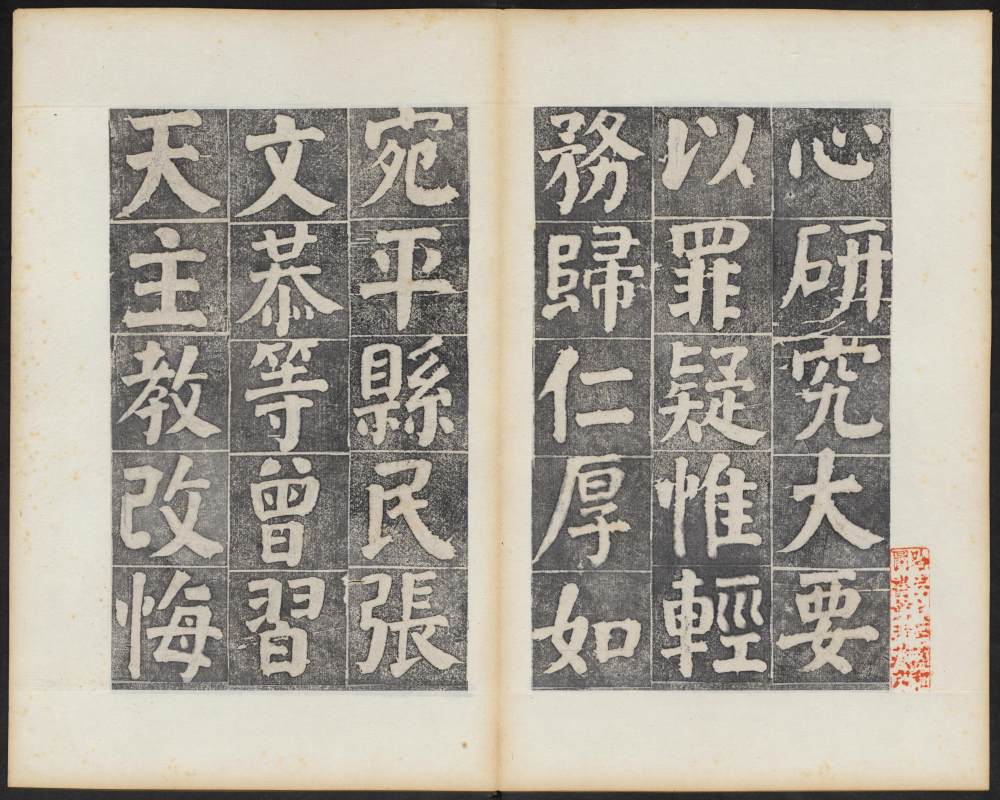 心研究大要
以罪疑惟輕
務歸仁厚如
宛平縣民張
文恭等曾習
天主教改悔